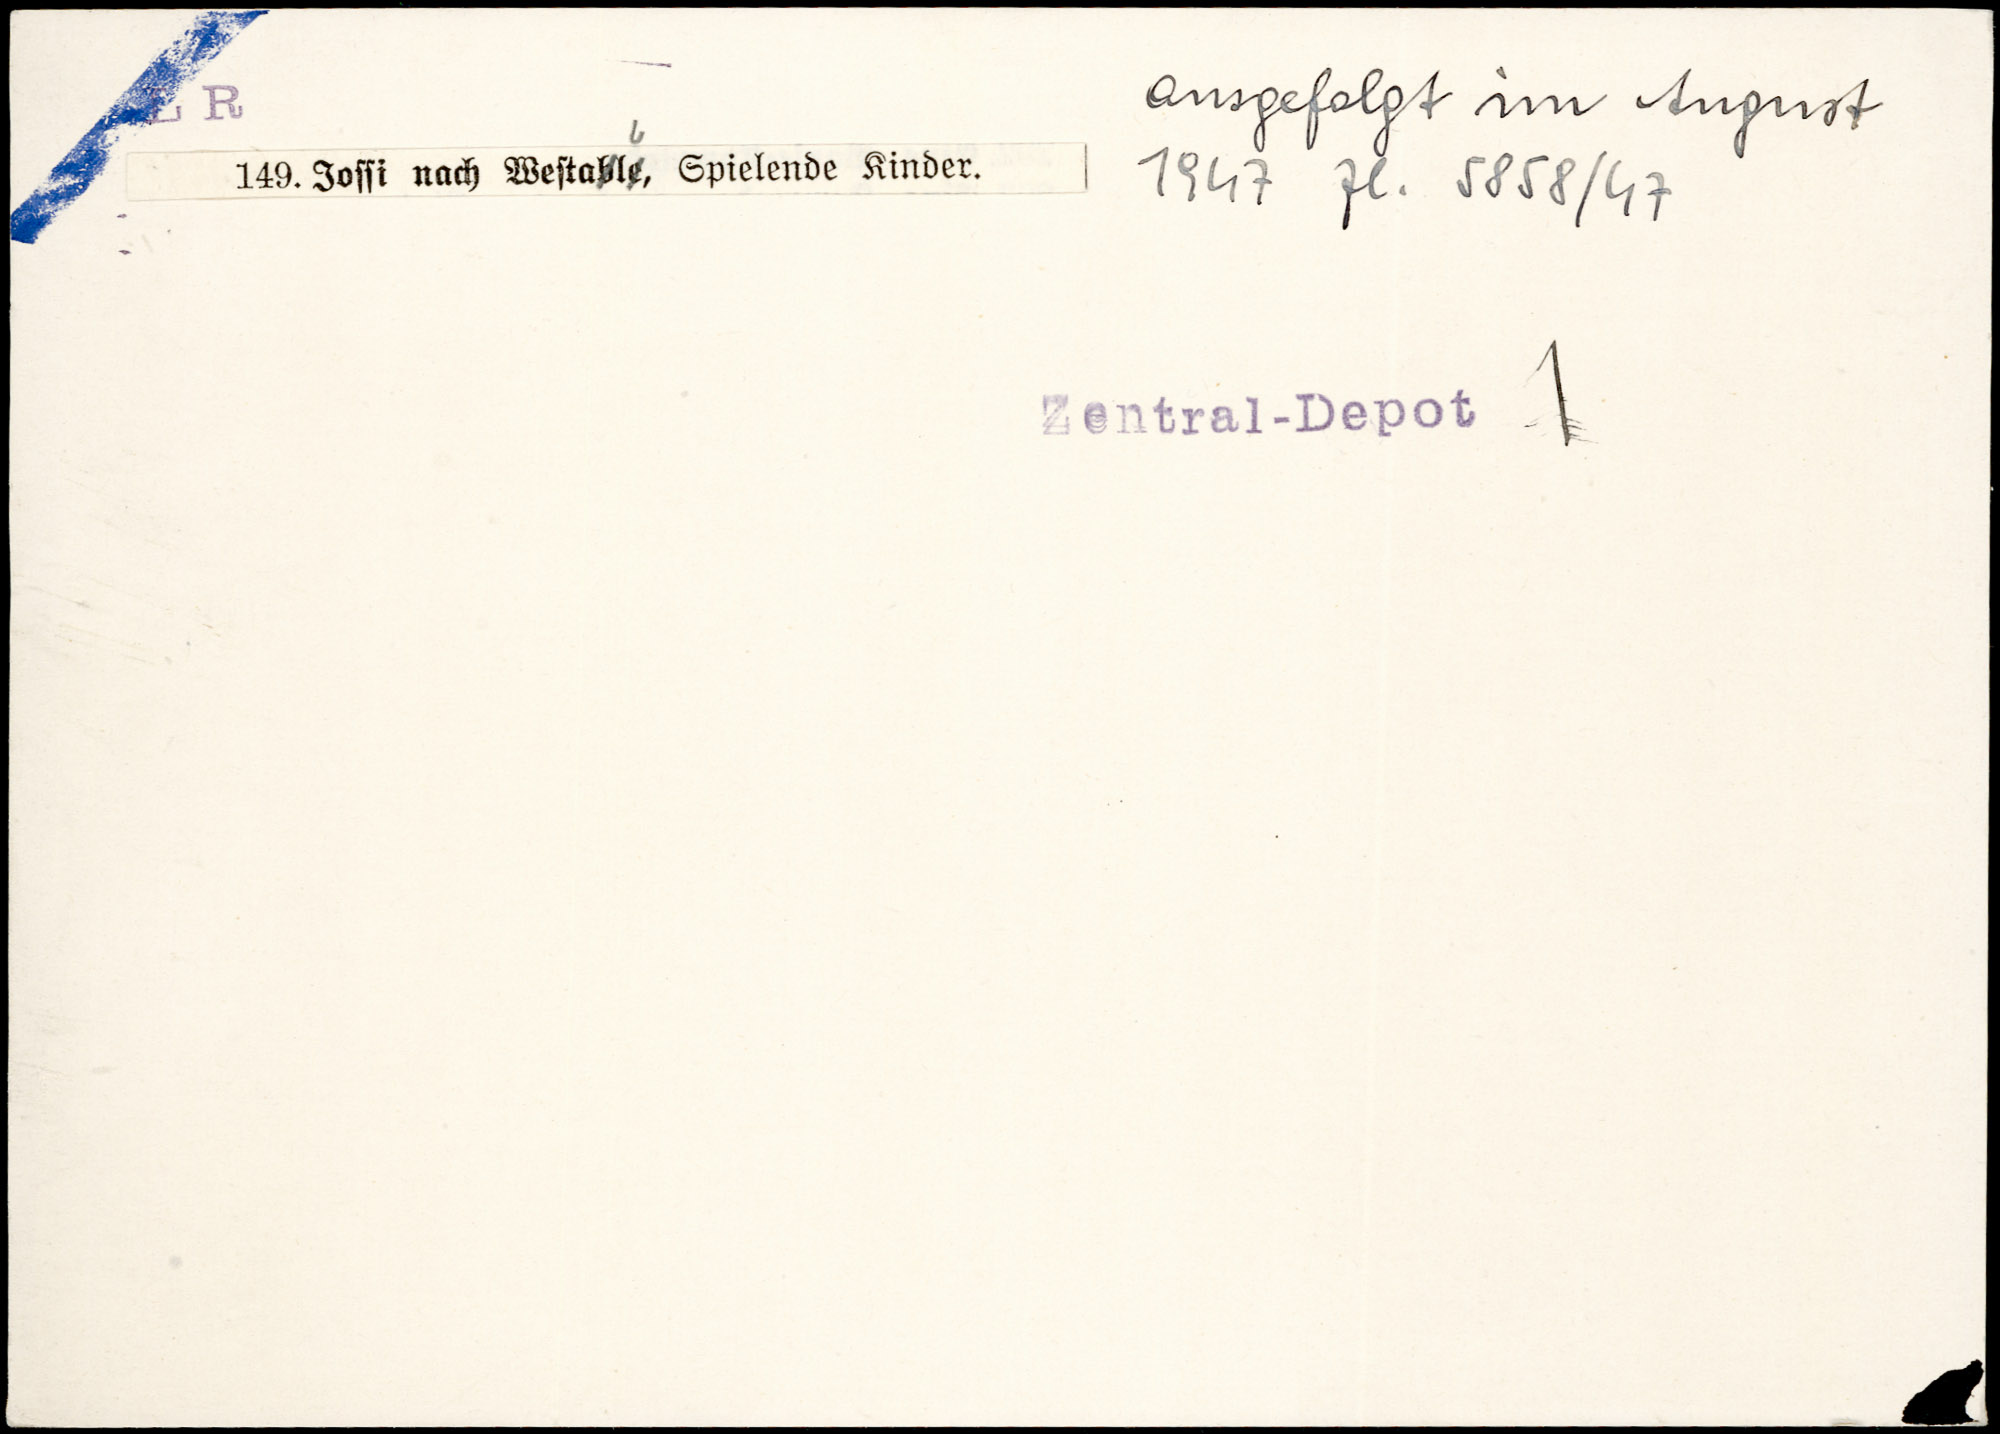 E R
149. Jossi nach Westahle, Spielende Kinder.
ausgefolgt im August
1947 Zl. 5858/47
Zentral-Depot 1